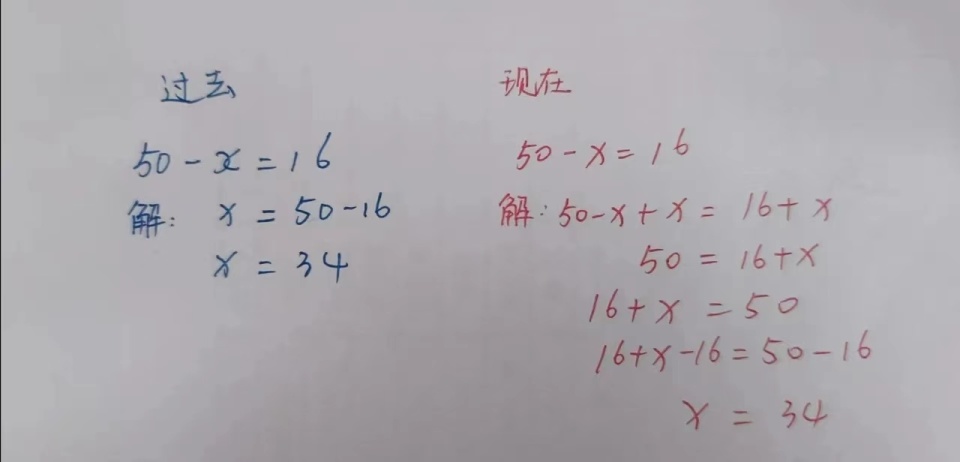 过去
50-x=16
解: x=50-16
x=34
现在
50-x=16
解:50-x+x=16+x
50=16+x
16+x=50
16+x-16=50-16
x=34